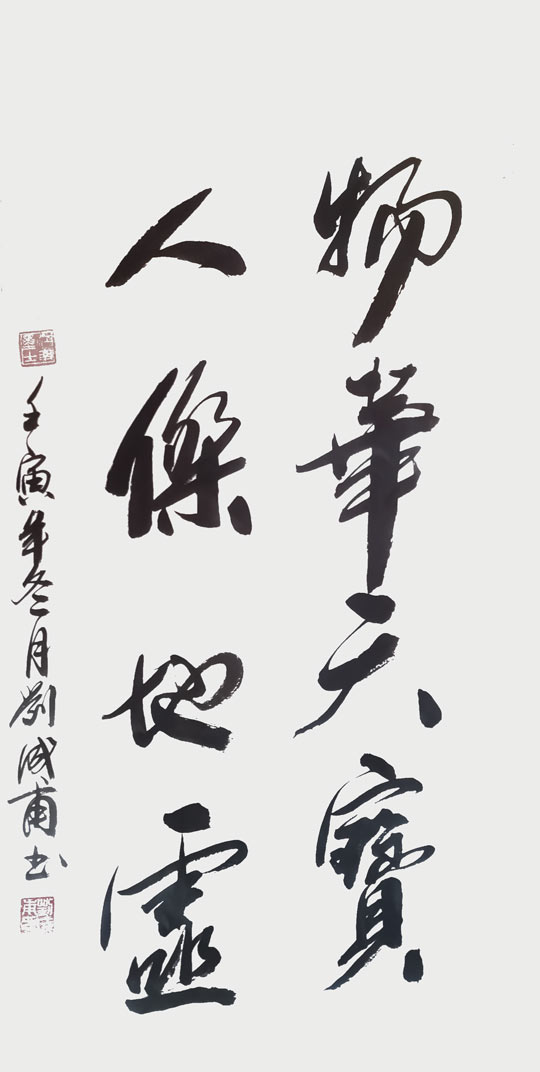 物華天寶
人傑地靈
壬寅年冬月劉成甫书